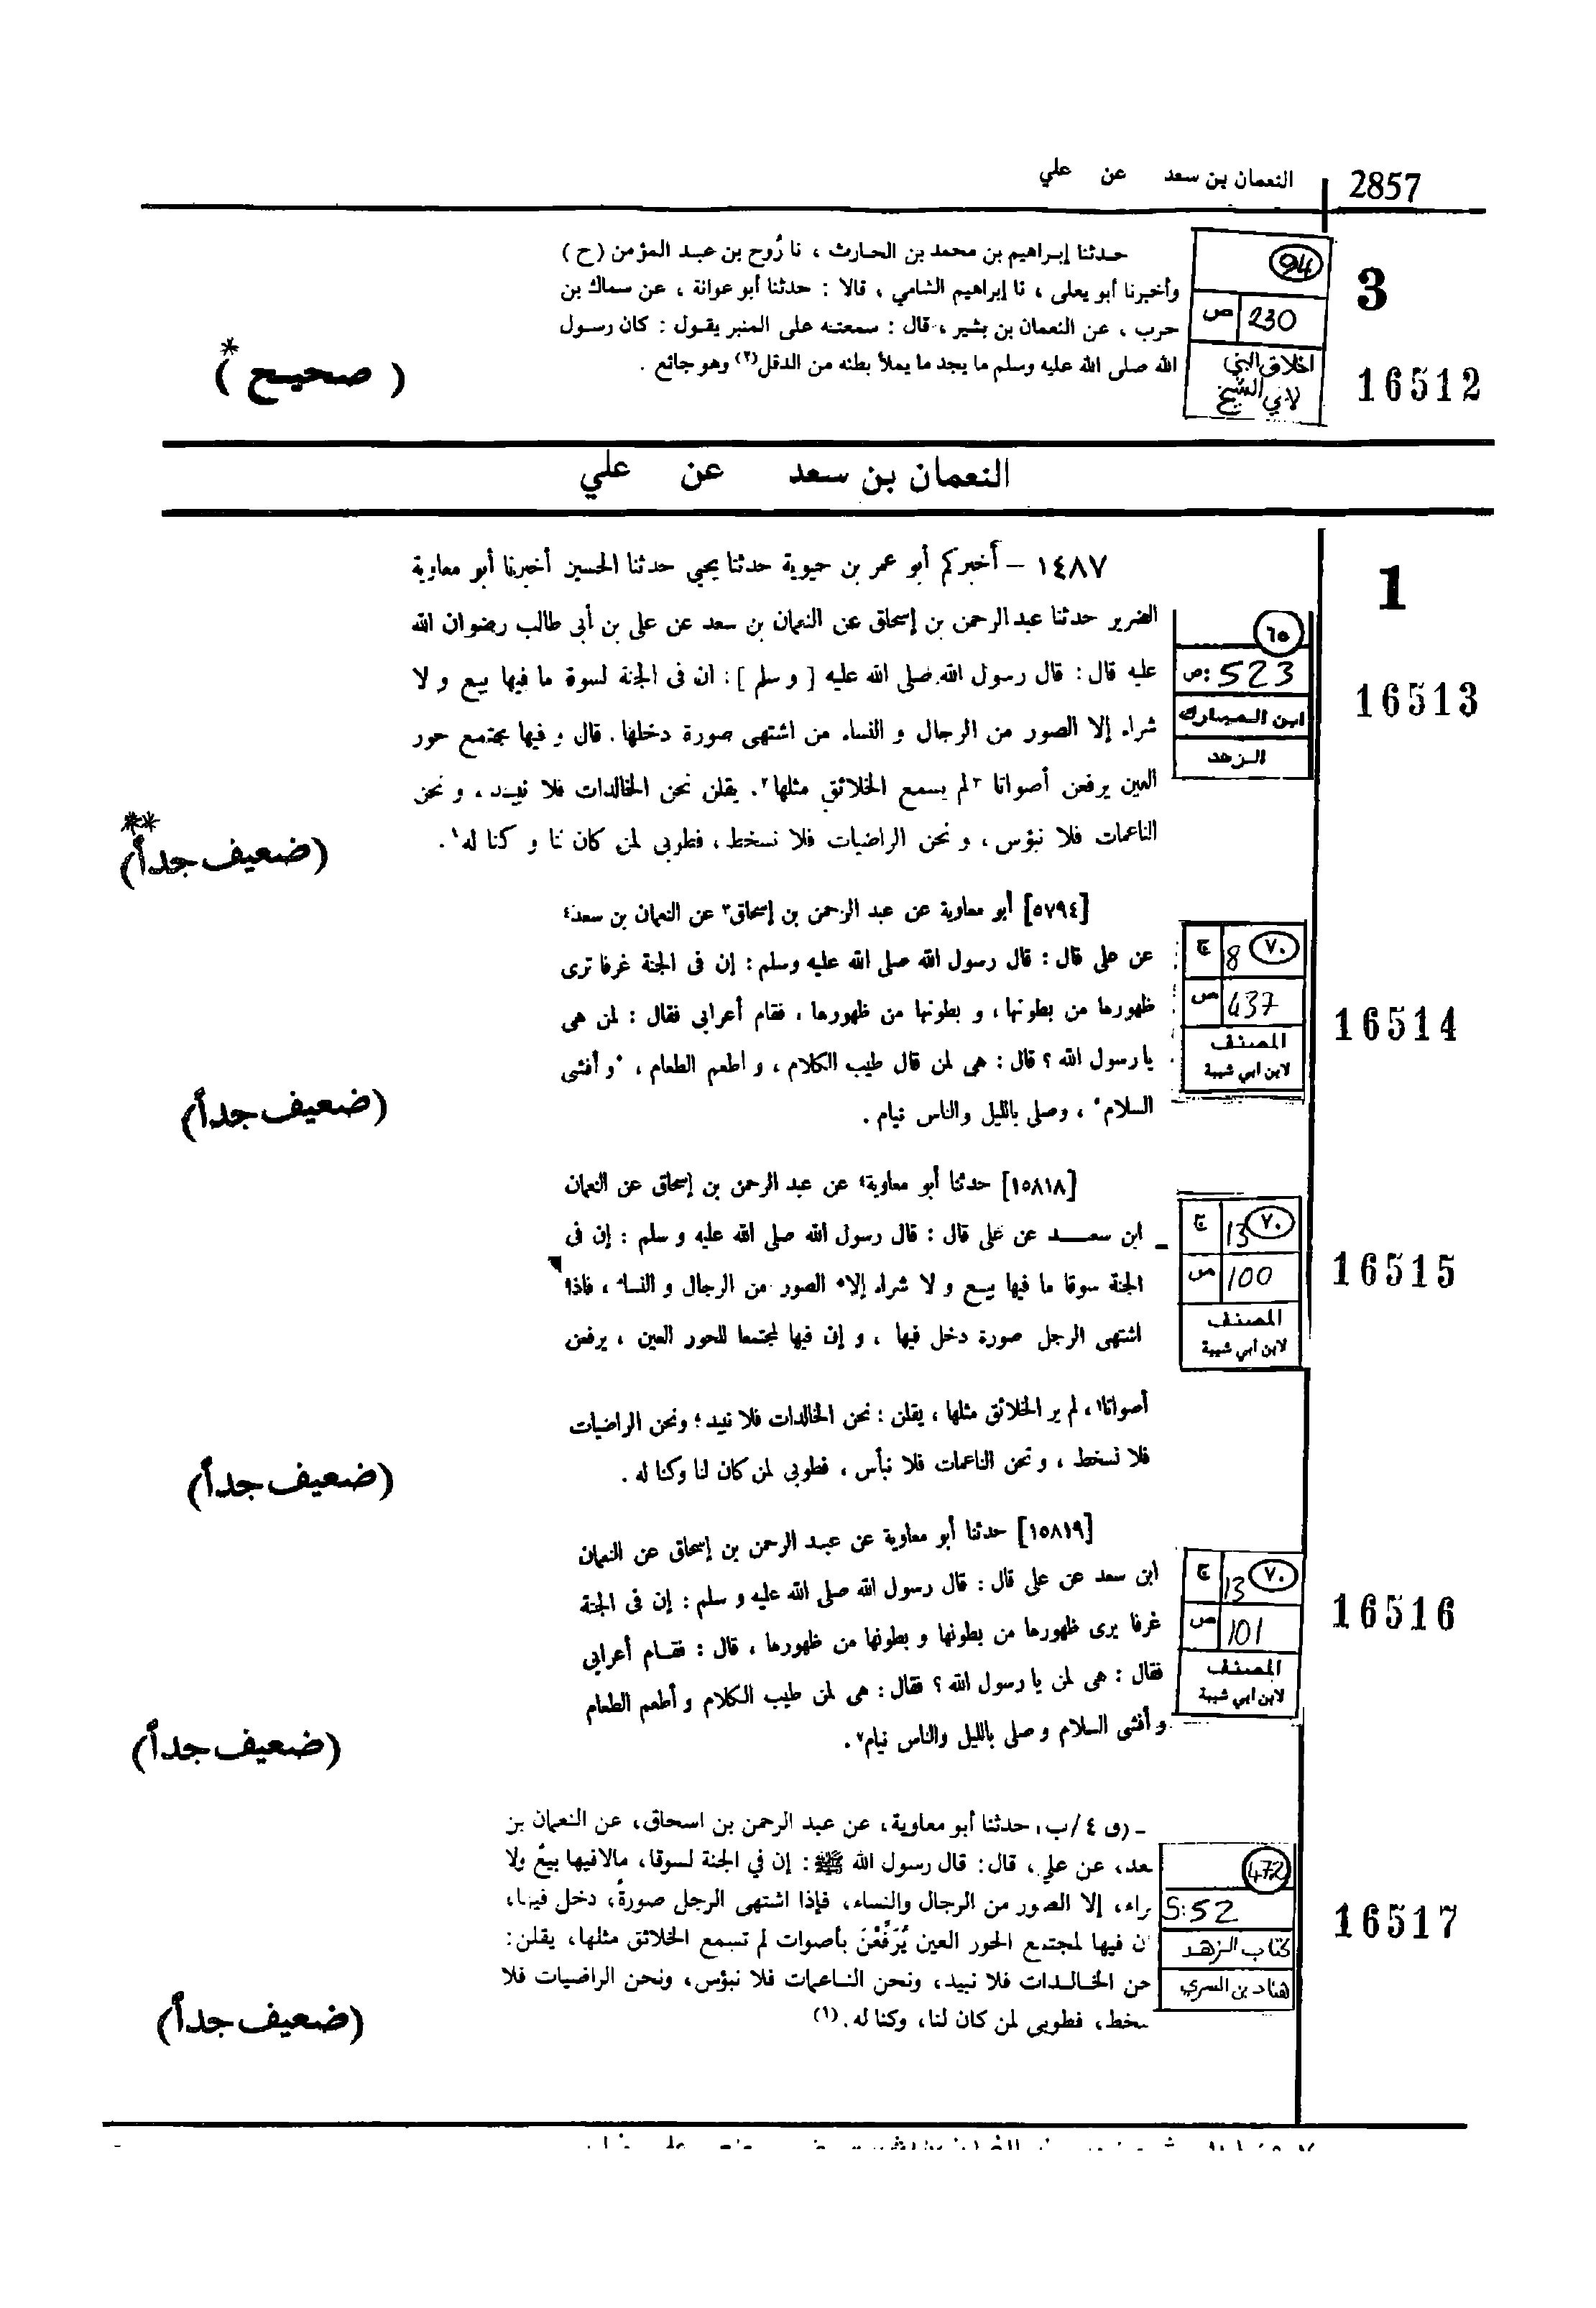 2857 النعمان بن سعد عن علي
3
16512
94
ص 230
اخلاق النبي
لابي الشيخ
حدثنا إبراهيم بن محمد بن الحارث ، نا رُوح بن عبد المؤمن (ح)
وأخبرنا أبو يعلى ، نا إبراهيم الشامي ، قالا : حدثنا أبو عوانة ، عن سماك بن
حرب ، عن النعمان بن بشير ، قال : سمعته على المنبر يقول : كان رسول
الله صلى الله عليه وسلم ما يجد ما يملأ بطنه من الدقل(٢) وهو جائع .
( صحيح )*
النعمان بن سعد عن علي
1
16513
٦٥
ص: 523
ابن المبارك
الزهد
١٤٨٧ – أخبركم أبو عمر بن حيوية حدثنا يحيى حدثنا الحسين أخبرنا أبو معاوية
الضرير حدثنا عبد الرحمن بن إسحاق عن النعمان بن سعد عن على بن أبى طالب رضوان الله
عليه قال : قال رسول الله صلى الله عليه [ و سلم ] : ان فى الجنة لسوقة ما فيها بيع و لا
شراء إلا الصور من الرجال و النساء من اشتهى صورة دخلها . قال و فيها يجتمع حور
العين يرفعن أصواتا ٢لم يسمع الخلائق مثلها٢ . يقلن نحن الخالدات فلا نبيد ، و نحن
الناعمات فلا نبؤس ، و نحن الراضيات فلا نسخط ، فطوبى لمن كان لنا و كنا له١ .
(ضعيف جداً)**
16514
٧٠
ج 8
ص 437
المصنف
لابن ابي شيبة
[٥٧٩٤] أبو معاوية عن عبد الرحمن بن إسحاق٣ عن النعمان بن سعد٤
عن على قال : قال رسول الله صلى الله عليه وسلم : إن فى الجنة غرفا ترى
ظهورها من بطونها ، و بطونها من ظهورها ، فقام أعرابى فقال : لمن هى
يا رسول الله ؟ قال : هى لمن قال طيب الكلام ، و اطعم الطعام ، ٥و أفشى
السلام٥ ، وصلى بالليل والناس نيام .
(ضعيف جداً)
16515
٧٠
ج 13
ص 100
المصنف
لابن أبي شيبة
[١٥٨١٨] حدثنا أبو معاوية٤ عن عبد الرحمن بن إسحاق عن النعمان
ابن سعد عن على قال : قال رسول الله صلى الله عليه و سلم : إن فى
الجنة سوقا ما فيها بيع و لا شراء إلا٥ الصور من الرجال و النساء ، فاذا
اشتهى الرجل صورة دخل فيها ، و إن فيها لمجتمعا للحور العين ، يرفعن
أصواتا١ ، لم ير الخلائق مثلها ، يقلن : نحن الخالدات فلا نبيد ؛ ونحن الراضيات
فلا نسخط ، و نحن الناعمات فلا نبأس ، فطوبى لمن كان لنا وكنا له .
(ضعيف جداً)
16516
٧٠
ج 13
ص 101
المصنف
لابن ابي شيبة
[١٥٨١٩] حدثنا أبو معاوية عن عبد الرحمن بن إسحاق عن النعمان
ابن سعد عن على قال : قال رسول الله صلى الله عليه و سلم : إن فى الجنة
غرفا يرى ظهورها من بطونها و بطونها من ظهورها ، قال : فقام أعرابى
فقال : هى لمن يا رسول الله ؟ فقال : هى لمن طيب الكلام و أطعم الطعام
و أفشى السلام و صلى بالليل والناس نيام٧ .
(ضعيف جداً)
16517
472
S:52
كتاب الزهد
هناد بن السري
- (ق ٤/ب) حدثنا أبو معاوية، عن عبد الرحمن بن اسحاق، عن النعمان بن
عد، عن علي، قال: قال رسول الله ﷺ: إن في الجنة لسوقا، مالافيها بيعٌ ولا
راء، إلا الصور من الرجال والنساء، فإذا اشتهى الرجل صورةً، دخل فيها،
ن فيها لمجتمع الحور العين يُرَفِّعْنَ بأصوات لم تسمع الخلائق مثلها، يقلن:
حن الخالدات فلا نبيد، ونحن الناعمات فلا نبؤس، ونحن الراضيات فلا
سخط، فطوبى لمن كان لنا، وكنا له.(١)
(ضعيف جداً)